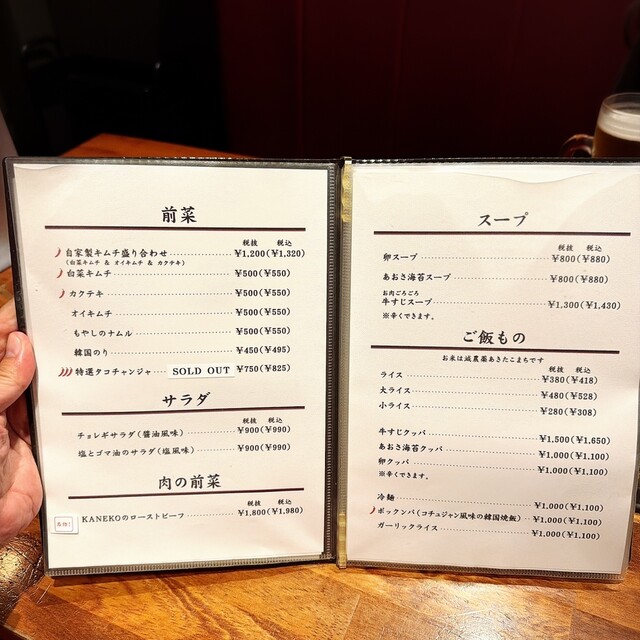 前菜
税抜 税込
自家製キムチ盛り合わせ ¥1,200(¥1,320)
(白菜キムチ & オイキムチ & カクテキ)
白菜キムチ ¥500(¥550)
カクテキ ¥500(¥550)
オイキムチ ¥500(¥550)
もやしのナムル ¥500(¥550)
韓国のり ¥450(¥495)
特選タコチャンジャ SOLD OUT ¥750(¥825)
サラダ
税抜 税込
チョレギサラダ(醤油風味) ¥900(¥990)
塩とゴマ油のサラダ(塩風味) ¥900(¥990)
肉の前菜
税抜 税込
KANEKOのローストビーフ ¥1,800(¥1,980)
スープ
税抜 税込
卵スープ ¥800(¥880)
あおさ海苔スープ ¥800(¥880)
お肉ごろごろ
牛すじスープ ¥1,300(¥1,430)
※辛くできます。
ご飯もの
お米は減農薬あきたこまちです
税抜 税込
ライス ¥380(¥418)
大ライス ¥480(¥528)
小ライス ¥280(¥308)
牛すじクッパ ¥1,500(¥1,650)
あおさ海苔クッパ ¥1,000(¥1,100)
卵クッパ ¥1,000(¥1,100)
※辛くできます。
冷麺 ¥1,000(¥1,100)
ポックンパ(コチュジャン風味の韓国焼飯) ¥1,000(¥1,100)
ガーリックライス ¥1,000(¥1,100)